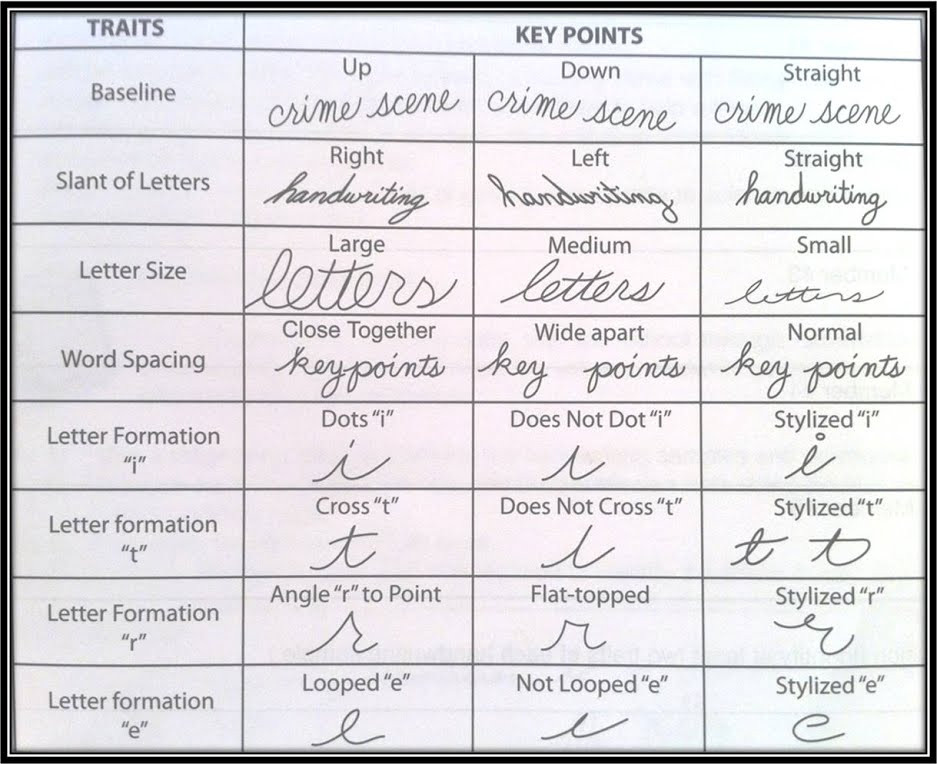 TRAITS KEY POINTS
Baseline
Up Down Straight
crime scene crime scene crime scene
Slant of Letters
Right Left Straight
handwriting handwriting handwriting
Letter Size
Large Medium Small
letters letters letters
Word Spacing
Close Together Wide apart Normal
key points key points key points
Letter Formation
"i"
Dots "i" Does Not Dot "i" Stylized "i"
i i i
Letter formation
"t"
Cross "t" Does Not Cross "t" Stylized "t"
t t t t
Letter Formation
"r"
Angle "r" to Point Flat-topped Stylized "r"
r r r r
Letter formation
"e"
Looped "e" Not Looped "e" Stylized "e"
e e e